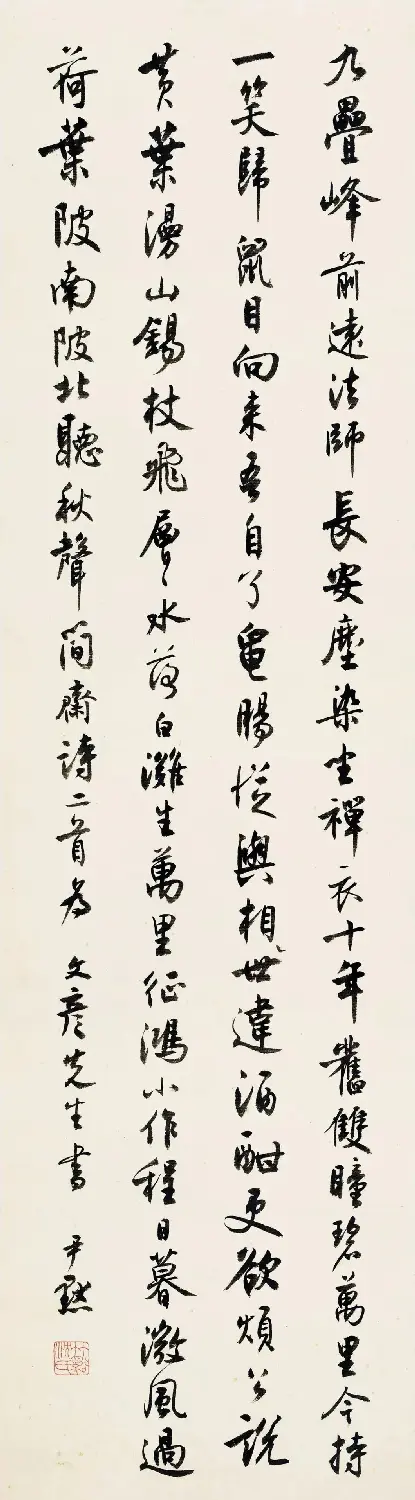 九疊峰前遠法師長安塵染坐禪衣十年舊雙瞳碧萬里今持
一笑歸鼠目向來吾自了龜腸從與世相違酒酣更欲煩公說
黃葉漫山錫杖飛層層水落白灘生萬里征鴻小作程日暮微風過
荷葉陂南陂北聽秋聲簡齋詩二首為文彥先生書 尹默